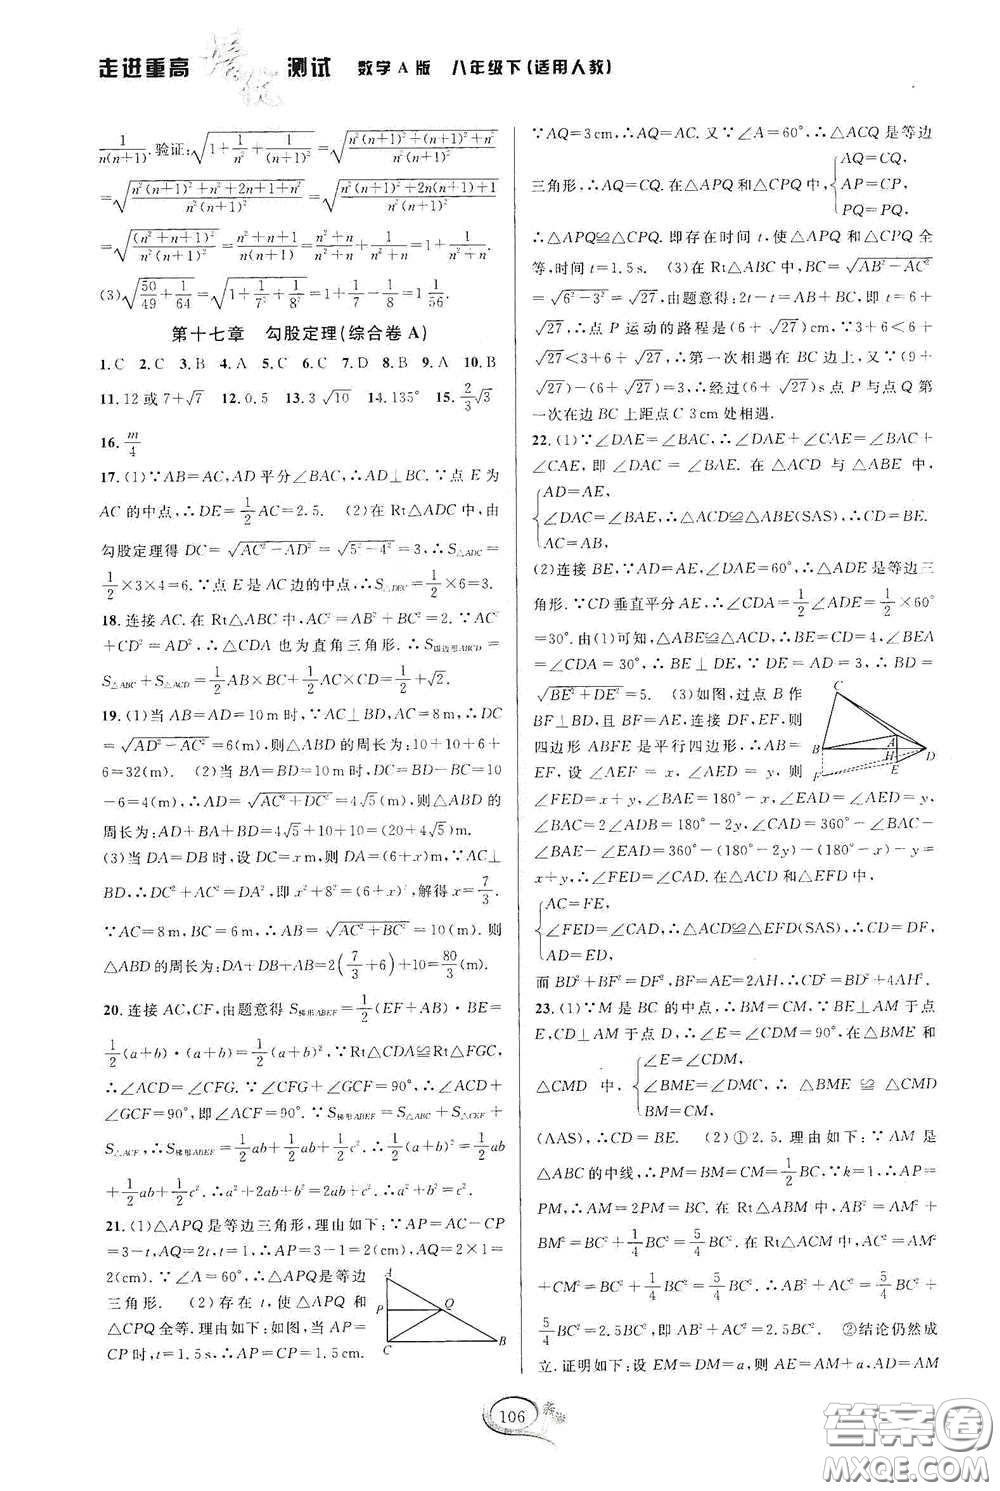 走进重高 培优 测试 数学A版 八年级下(适用人教)
1/n(n+1). 验证:√(1+1/n²+1/(n+1)²)=√((n²(n+1)²+(n+1)²+n²)/(n²(n+1)²))
=√((n²(n+1)²+n²+2n+1+n²)/(n²(n+1)²))=√((n²(n+1)²+2n(n+1)+1)/(n²(n+1)²))
=√((n²+n+1)²/(n²(n+1)²))=(n²+n+1)/(n(n+1))=(n²+n)/(n²+n)+1/(n²+n)=1+1/(n²+n).
(3)√(50/49+1/64)=√(1+1/7²+1/8²)=1+1/7−1/8=1 1/56.
第十七章 勾股定理(综合卷A)
1.C 2.C 3.B 4.A 5.C 6.C 7.D 8.B 9.A 10.B
11.12或7+√7 12.0.5 13.3√10 14.135° 15.2/3√3
16.m/4
17.(1)∵AB=AC,AD平分∠BAC,∴AD⊥BC.∵点E为
AC的中点,∴DE=1/2AC=2.5. (2)在Rt△ADC中,由
勾股定理得DC=√(AC²−AD²)=√(5²−4²)=3,∴S△ADC=
1/2×3×4=6.∵点E是AC边的中点,∴S△DEC=1/2×6=3.
18.连接AC.在Rt△ABC中,AC²=AB²+BC²=2.∵AC²
+CD²=AD²,∴△CDA也为直角三角形.∴S四边形ABCD=
S△ABC+S△ACD=1/2AB×BC+1/2AC×CD=1/2+√2.
19.(1)当AB=AD=10m时,∵AC⊥BD,AC=8m,∴DC
=√(AD²−AC²)=6(m),则△ABD的周长为:10+10+6+
6=32(m). (2)当BA=BD=10m时,∴DC=BD−BC=10
−6=4(m),∴AD=√(AC²+DC²)=4√5(m),则△ABD的
周长为:AD+BA+BD=4√5+10+10=(20+4√5)m.
(3)当DA=DB时,设DC=xm,则DA=(6+x)m,∵AC⊥
BD,∴DC²+AC²=DA²,即x²+8²=(6+x)²,解得x=7/3.
∵AC=8m,BC=6m,∴AB=√(AC²+BC²)=10(m).则
△ABD的周长为:DA+DB+AB=2(7/3+6)+10=80/3(m).
20.连接AC,CF,由题意得S梯形ABEF=1/2(EF+AB)·BE=
1/2(a+b)·(a+b)=1/2(a+b)²,∵Rt△CDA≌Rt△FGC,
∴∠ACD=∠CFG.∵∠CFG+∠GCF=90°,∴∠ACD+
∠GCF=90°,即∠ACF=90°.∵S梯形ABEF=S△ABC+S△CEF+
S△ACF,∴S梯形ABEF=1/2ab+1/2ab+1/2c²,∴1/2(a+b)²=1/2ab
+1/2ab+1/2c².∴a²+2ab+b²=2ab+c².∴a²+b²=c².
21.(1)△APQ是等边三角形,理由如下:∵AP=AC−CP
=3−t,AQ=2t,t=1,∴AP=3−1=2(cm),AQ=2×1=
2(cm).∵∠A=60°,∴△APQ是等边
三角形. (2)存在t,使△APQ和
△CPQ全等.理由如下:如图,当AP=
CP时,t=1.5s,∴AP=CP=1.5cm.
A
P Q
C B
∵AQ=3cm,∴AQ=AC.又∵∠A=60°,∴△ACQ是等边
三角形,∴AQ=CQ.在△APQ和△CPQ中,{AQ=CQ,
AP=CP,
PQ=PQ,
∴△APQ≌△CPQ.即存在时间t,使△APQ和△CPQ全
等,时间t=1.5s. (3)在Rt△ABC中,BC=√(AB²−AC²)
=√(6²−3²)=√27,由题意得:2t−t=AB+BC,即t=6+
√27,∴点P运动的路程是(6+√27)cm,∵3+6<6+
√27<3+6+√27,∴第一次相遇在BC边上,又∵(9+
√27)−(6+√27)=3,∴经过(6+√27)s点P与点Q第
一次在边BC上距点C 3cm处相遇.
22.(1)∵∠DAE=∠BAC,∴∠DAE+∠CAE=∠BAC+
∠CAE,即∠DAC=∠BAE.在△ACD与△ABE中,
{AD=AE,
∠DAC=∠BAE,∴△ACD≌△ABE(SAS),∴CD=BE.
AC=AB,
(2)连接BE,∵AD=AE,∠DAE=60°,∴△ADE是等边三
角形.∵CD垂直平分AE,∴∠CDA=1/2∠ADE=1/2×60°
=30°.由(1)可知,△ABE≌△ACD,∴BE=CD=4,∠BEA
=∠CDA=30°,∴BE⊥DE,∵DE=AD=3,∴BD=
√(BE²+DE²)=5. (3)如图,过点B作
BF⊥BD,且BF=AE,连接DF,EF,则
四边形ABFE是平行四边形,∴AB=
EF,设∠AEF=x,∠AED=y,则
C
A
B H D
F E
∠FED=x+y,∠BAE=180°−x,∠EAD=∠AED=y,
∠BAC=2∠ADB=180°−2y,∠CAD=360°−∠BAC−
∠BAE−∠EAD=360°−(180°−2y)−(180°−x)−y=
x+y,∴∠FED=∠CAD.在△ACD和△EFD中,
{AC=FE,
∠FED=∠CAD,∴△ACD≌△EFD(SAS),∴CD=DF,
AD=ED,
而BD²+BF²=DF²,BF=AE=2AH,∴CD²=BD²+4AH².
23.(1)∵M是BC的中点,∴BM=CM,∵BE⊥AM于点
E,CD⊥AM于点D,∴∠E=∠CDM=90°.在△BME和
△CMD中,{∠E=∠CDM,
∠BME=∠DMC,∴△BME≌△CMD
BM=CM,
(AAS),∴CD=BE. (2)①2.5.理由如下:∵AM是
△ABC的中线,∴PM=BM=CM=1/2BC,∵k=1,∴AP=
PM,∴AM=2PM=BC.在Rt△ABM中,AB²=AM²+
BM²=BC²+1/4BC²=5/4BC².在Rt△ACM中,AC²=AM²
+CM²=BC²+1/4BC²=5/4BC².∴AB²+AC²=5/4BC²+
5/4BC²=2.5BC²,即AB²+AC²=2.5BC². ②结论仍然成
立.证明如下:设EM=DM=a,则AE=AM+a,AD=AM
106
答案卷
MXQE.COM